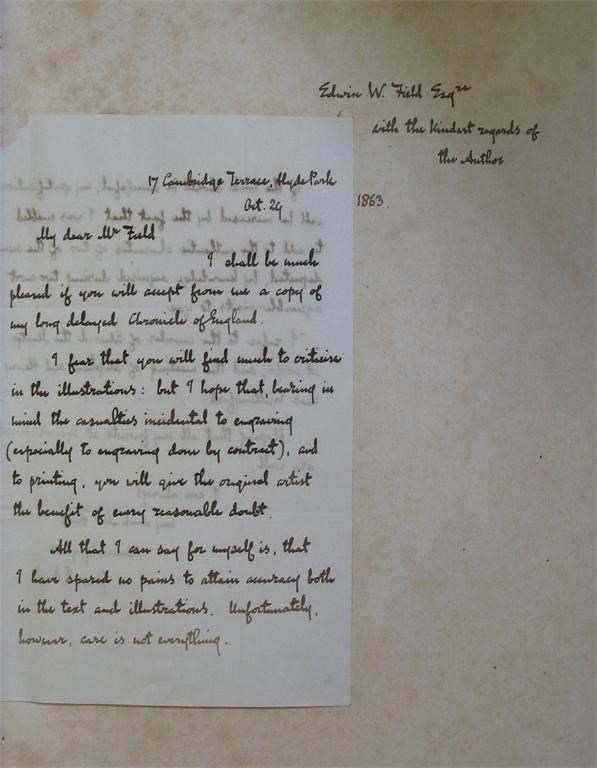 Edwin W. Field Esqre
with the kindest regards of
the Author
1863.
17 Cambridge Terrace, Hyde Park
Oct. 29
My dear Mr Field
I shall be much
pleased if you will accept from me a copy of
my long delayed Chronicle of England.
I fear that you will find much to criticise
in the illustrations: but I hope that, bearing in
mind the casualties incidental to engraving
(especially to engraving done by contract), and
to printing, you will give the original artist
the benefit of every reasonable doubt.
All that I can say for myself is, that
I have spared no pains to attain accuracy both
in the text and illustrations. Unfortunately,
however, care is not everything.